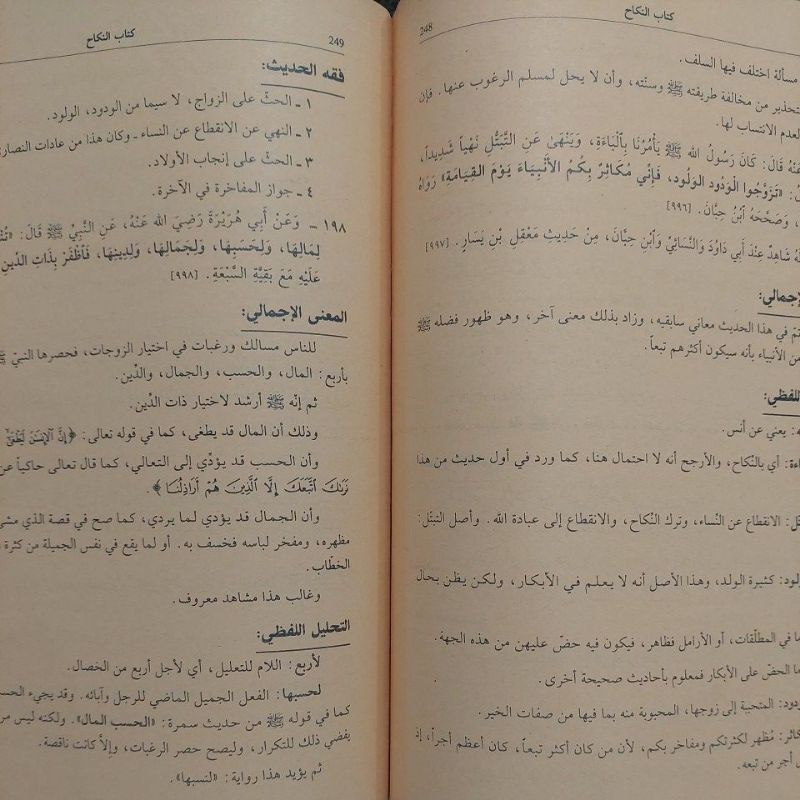 كتاب النكاح
248
مسألة اختلف فيها السلف.
تحذير من مخالفة طريقته ﷺ وسنّته، وأن لا يحل لمسلم الرغوب عنها. فإن
لعدم الانتساب لها.
عَنْهُ قَالَ: كَانَ رَسُولُ الله ﷺ يَأْمُرُنَا بِالْبَاءَةِ، وَيَنْهَى عَنِ التَّبَتُّلِ نَهْياً شَدِيداً،
«تَزَوَّجُوا الْوَدُودَ الْوَلُودَ، فَإِنِّي مُكَاثِرٌ بِكُمُ الأَنْبِيَاءَ يَوْمَ الْقِيَامَةِ» رَوَاهُ
، وَصَحَّحَهُ ابْنُ حِبَّانَ. [٩٩٦]
شَاهِدٌ عِنْدَ أَبِي دَاوُدَ وَالنَّسَائِيِّ وَابْنِ حِبَّانَ، مِنْ حَدِيثِ مَعْقِلِ بْنِ يَسَارٍ. [٩٩٧]
لإجمالي:
في هذا الحديث معاني سابقيه، وزاد بذلك معنى آخر، وهو ظهور فضله ﷺ
من الأنبياء بأنه سيكون أكثرهم تبعاً.
اللفظي:
يعني عن أنس.
أي بالنّكاح، والأرجح أنه لا احتمال هنا، كما ورد في أول حديث من هذا
الانقطاع عن النّساء، وترك النّكاح، والانقطاع إلى عبادة الله. وأصل التبتّل:
كثيرة الولد، وهذا الأصل أنه لا يعلم في الأبكار، ولكن يظن بحال
في المطلّقات، أو الأرامل فظاهر، فيكون فيه حضّ عليهن من هذه الجهة.
الحضّ على الأبكار فمعلوم بأحاديث صحيحة أخرى.
المتحببة إلى زوجها، المحبوبة منه بما فيها من صفات الخير.
مُظهر لكثرتكم ومفاخر بكم، لأن من كان أكثر تبعاً، كان أعظم أجراً، إذ
أجر من تبعه.
كتاب النكاح
249
فقه الحديث:
١ ـ الحثّ على الزواج، لا سيما من الودود، الولود.
٢ ـ النهي عن الانقطاع عن النساء ـ وكان هذا من عادات النصارى
٣ ـ الحثّ على إنجاب الأولاد.
٤ ـ جواز المفاخرة في الآخرة.
١٩٨ ـ وَعَنْ أَبِي هُرَيْرَةَ رَضِيَ الله عَنْهُ، عَنِ النَّبِيِّ ﷺ قَالَ:
لِمَالِهَا، وَلِحَسَبِهَا، وَلِجَمَالِهَا، وَلِدِينِهَا، فَاظْفَرْ بِذَاتِ الدِّينِ
عَلَيْهِ مَعَ بَقِيَّةِ السَّبْعَةِ. [٩٩٨]
المعنى الإجمالي:
للناس مسالك ورغبات في اختيار الزوجات، فحصرها النبيّ ﷺ
بأربع: المال، والحسب، والجمال، والدّين.
ثم إنّه ﷺ أرشد لاختيار ذات الدِّين.
وذلك أن المال قد يطغى، كما في قوله تعالى: ﴿إِنَّ الْإِنسَنَ لَيَطْغَىٰ
وأن الحسب قد يؤدّي إلى التعالي، كما قال تعالى حاكياً عن
نَرَىٰكَ اتَّبَعَكَ إِلَّا الَّذِينَ هُمْ أَرَاذِلُنَا﴾.
وأن الجمال قد يؤدي لما يردي، كما صح في قصة الذي مشى
مظهره، ومفخر لباسه فخسف به. أو لما يقع في نفس الجميلة من كثرة
الخطّاب.
وغالب هذا مشاهد معروف.
التحليل اللفظي:
لأربع: اللام للتعليل، أي لأجل أربع من الخصال.
لحسبها: الفعل الجميل الماضي للرجل وآبائه. وقد يجيء الحسب
كما في قوله ﷺ من حديث سمرة: «الحسب المال». ولكنه ليس
يفضي ذلك للتكرار، وليصح حصر الرغبات، وإلا كانت ناقصة.
ثم يؤيد هذا رواية: «لنسبها».